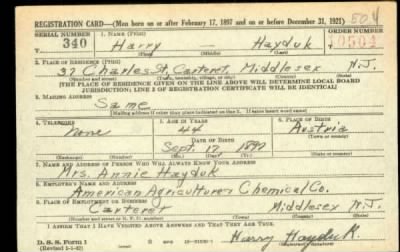 REGISTRATION CARD—(Men born on or after February 17, 1897 and on or before December 31, 1921) 504
SERIAL NUMBER 1. NAME (Print) ORDER NUMBER
340 Harry Hayduk 10504
(First) (Middle) (Last)
2. PLACE OF RESIDENCE (Print)
37 Charles St. Carteret, Middlesex N.J.
(Number and street) (Town, township, village, or city) (County) (State)
[THE PLACE OF RESIDENCE GIVEN ON THE LINE ABOVE WILL DETERMINE LOCAL BOARD
JURISDICTION; LINE 2 OF REGISTRATION CERTIFICATE WILL BE IDENTICAL]
3. MAILING ADDRESS
Same
[Mailing address if other than place indicated on line 2. If same insert word same]
4. TELEPHONE 5. AGE IN YEARS 6. PLACE OF BIRTH
None 44 Austria
DATE OF BIRTH (Town or county)
Sept. 17 1897
(Exchange) (Number) (Mo.) (Day) (Yr.) (State or country)
7. NAME AND ADDRESS OF PERSON WHO WILL ALWAYS KNOW YOUR ADDRESS
Mrs. Annie Hayduk
8. EMPLOYER'S NAME AND ADDRESS
American Agricultures Chemical Co.
9. PLACE OF EMPLOYMENT OR BUSINESS
Carteret Middlesex N.J.
(Number and street or R. F. D. number) (Town) (County) (State)
I AFFIRM THAT I HAVE VERIFIED ABOVE ANSWERS AND THAT THEY ARE TRUE.
D. S. S. Form 1
(Revised 1-1-42) (over) Harry Hayduk.
(Registrant's signature)